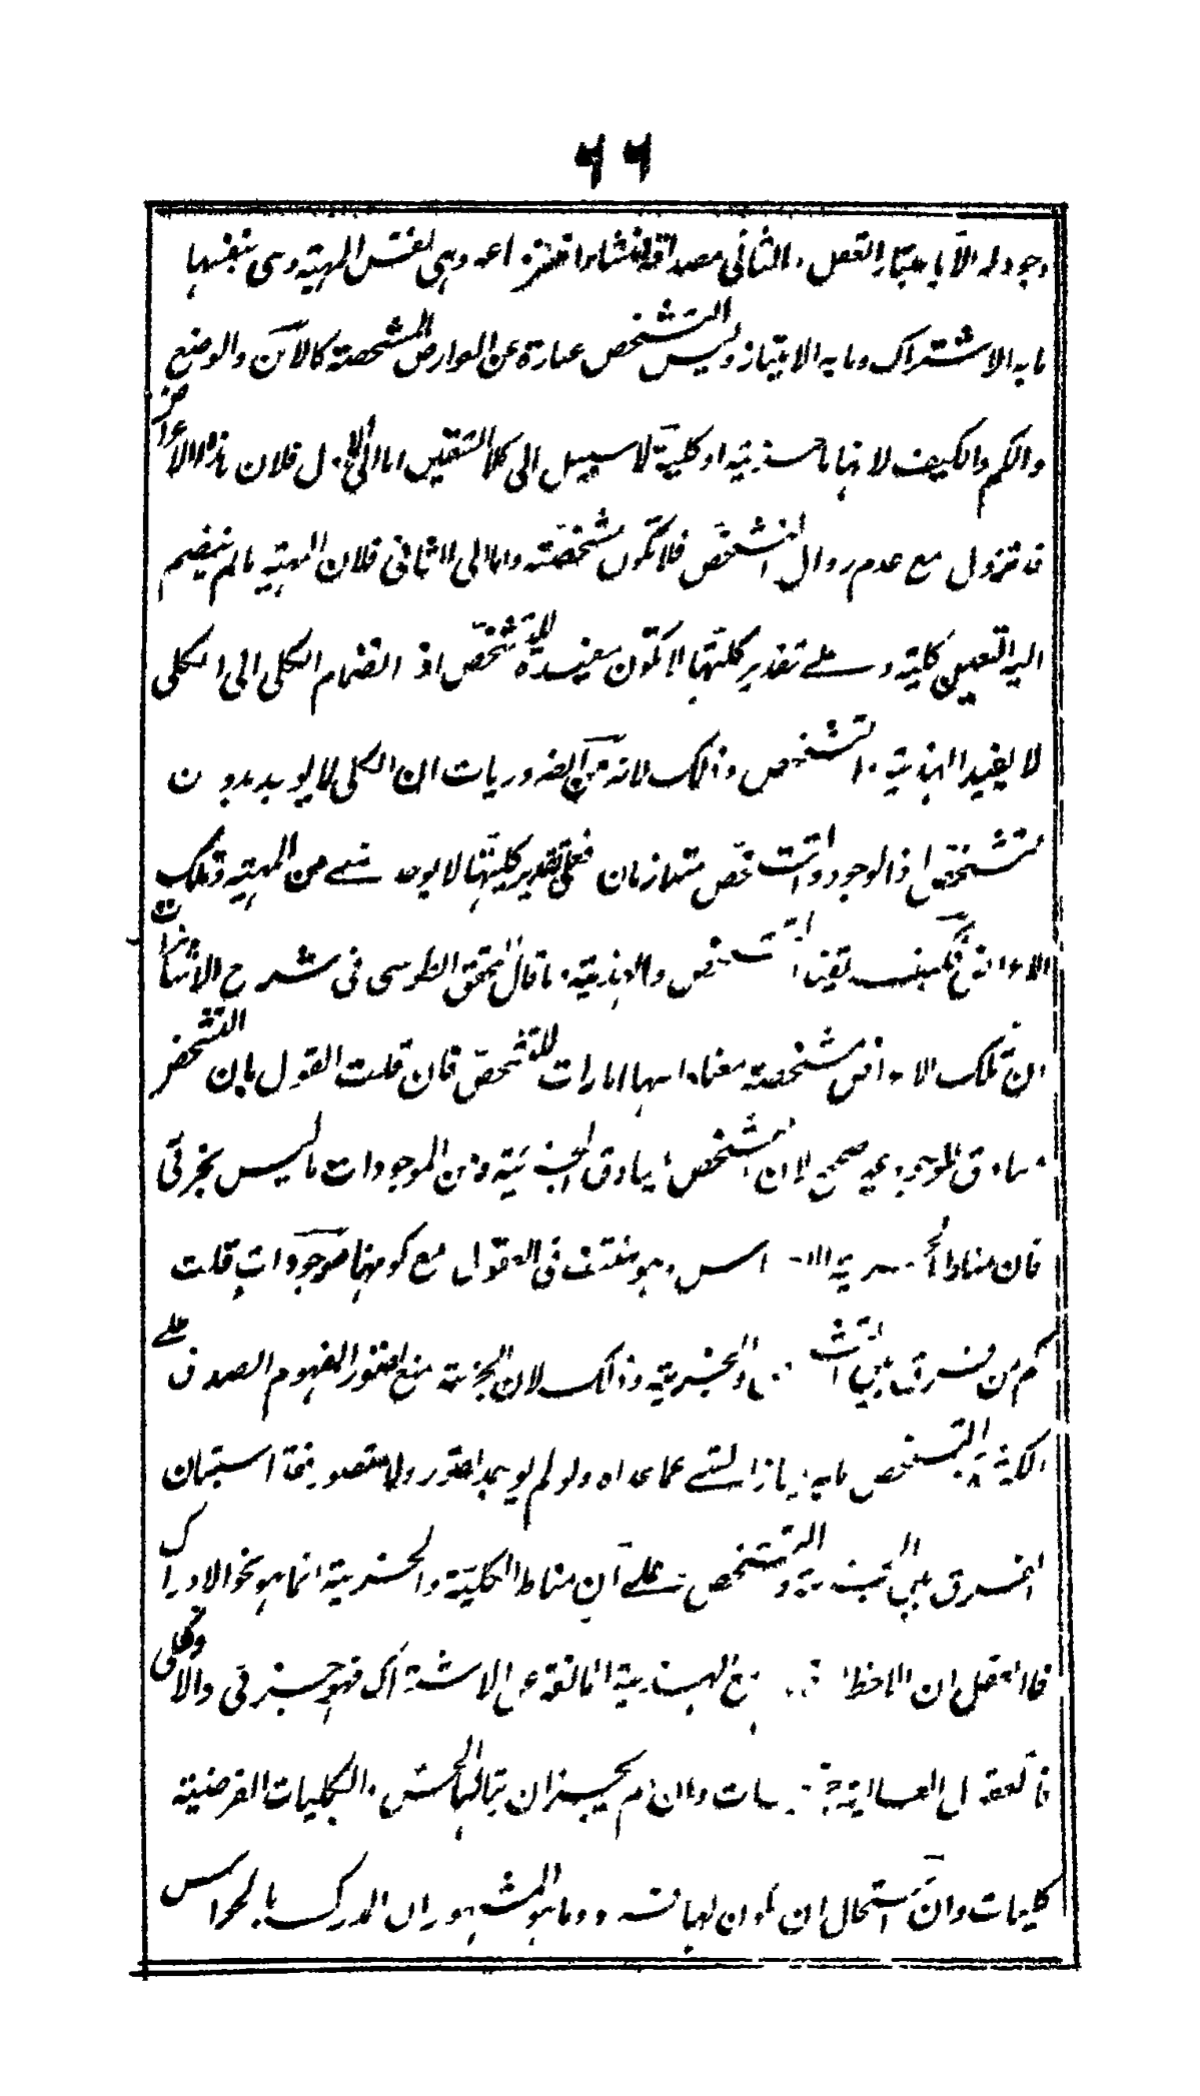 ٦٦
وجود له الا باعتبار العقل والثانی مصداقه و منشاء انتزاعه وهی نفس المهیته وهی بنفسها
ما به الاشتراک وما به الامتیاز ولیس التشخص عبارة عن العوارض المشخصة کالاین والوضع
والکم والکیف لانها اما جزئیة او کلیة لا سبیل الی کلا الشقین اما الی الاول فلان هذه الاعراض
قد تزول مع عدم زوال الشخص فلا تکون مشخصته واما الی الثانی فلان المهیته ما لم ینضم
الیه التعین کلیة وعلے تقدیر کلیتها لا تکون مفیدة للتشخص اذ انضمام الکلی الی الکلی
لا یفید الهذیة والتشخص وذلک لانه من الضروریات ان الکلی لا یوجد بدون
تشخص اذ الوجود والتشخص متلازمان فعلی تقدیر کلیتها لا یوجد شے من المهیته وتلک
الاعراض فکیف تفید التشخص والهذیة وما قال المحقق الطوسی فی شرح الاشارات
ان تلک الاعراض مشخصة معناه انها امارات للتشخص فان قلت القول بان التشخص
مساوق للوجود غیر صحیح لان التشخص یساوق الجزئیة ومن الموجودات ما لیس بجزئی
فان مناط الجزئیة الاحساس وهو منتف فی العقول مع کونها موجودات قلت
کم من فرق بین التشخص والجزئیة وذلک لان الجزئیة منع تصور المفهوم الصدق علے
الکثرة والتشخص ما به یمتاز الشے عما عداه ولو لم یوجد تصور ولا متصور فقد استبان
الفرق بین الجزئیة والتشخص علے ان مناط الکلیة والجزئیة انما هو نحو الادراک
فالعقل ان لاحظ مع الهذیة المانعة عن الاشتراک فهو جزئی والا فکلی
فالعقول العالیة جزئیات وان لم یجز ان ینالها الحس والکلیات الفرضیة
کلیات وان استحال ان یکون لها وما هو المشهور ان المدرک بالحواس